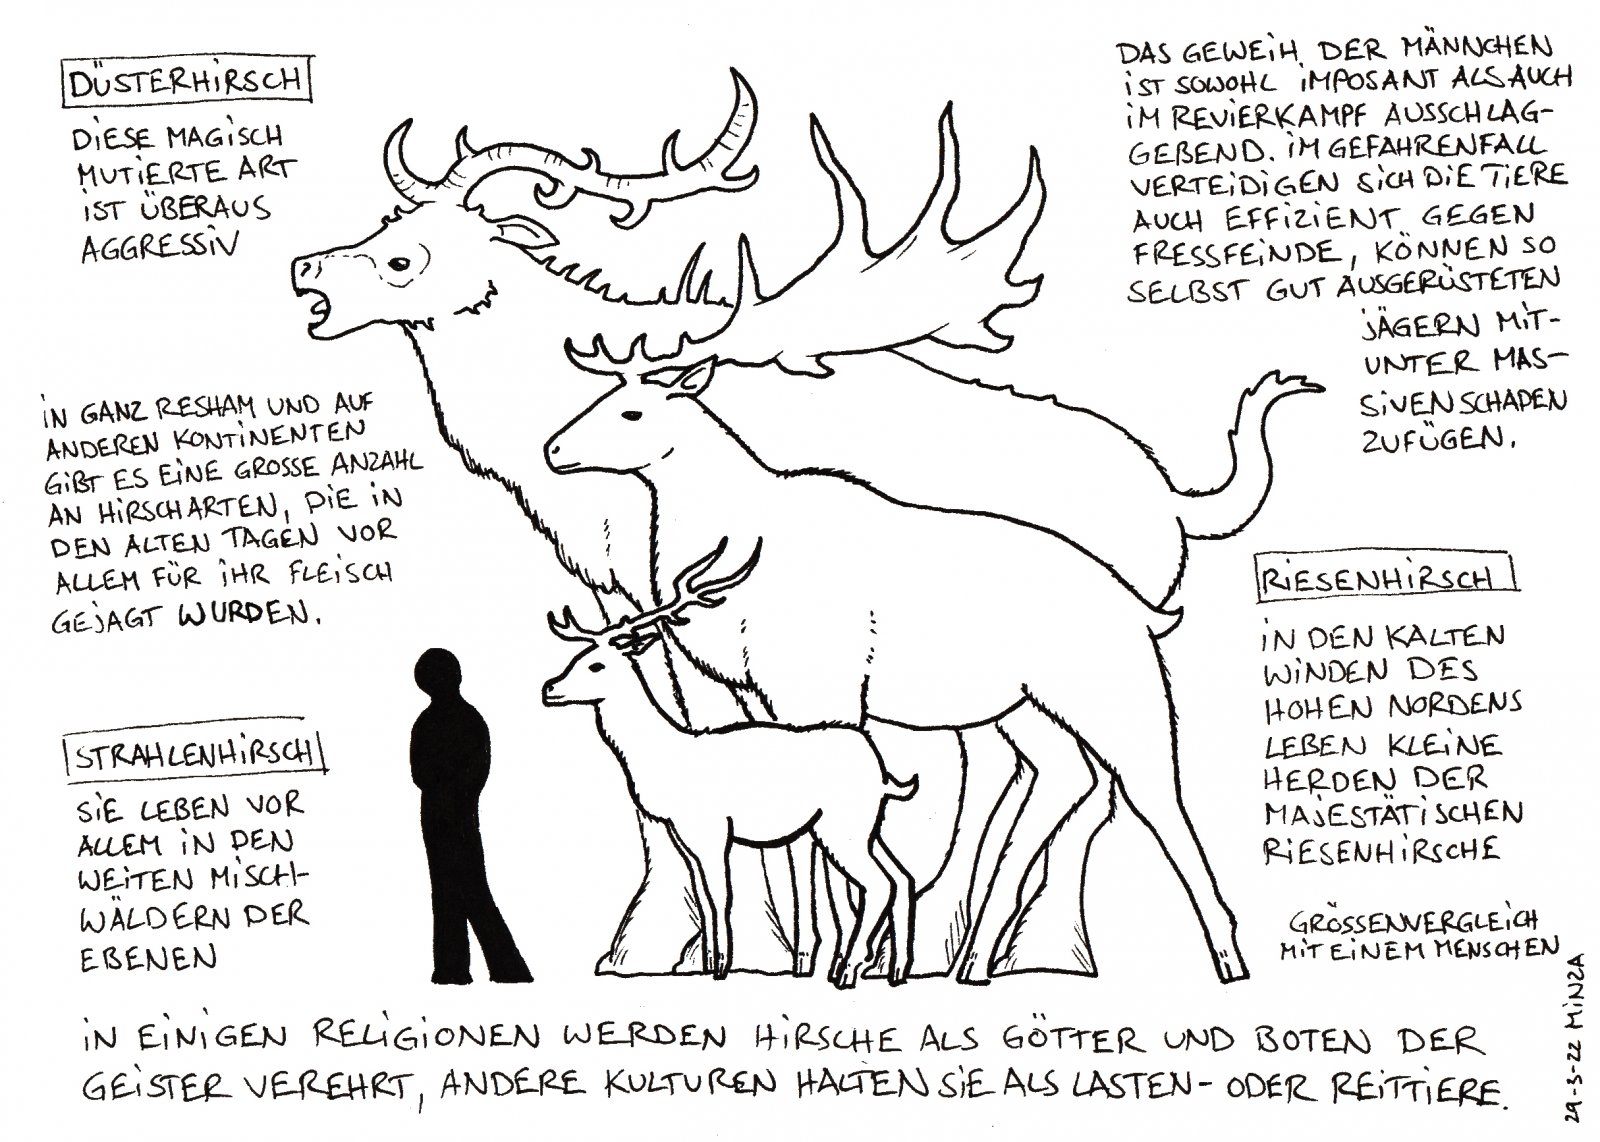 DÜSTERHIRSCH
DIESE MAGISCH
MUTIERTE ART
IST ÜBERAUS
AGGRESSIV
DAS GEWEIH DER MÄNNCHEN
IST SOWOHL IMPOSANT ALS AUCH
IM REVIERKAMPF AUSSCHLAG-
GEBEND. IM GEFAHRENFALL
VERTEIDIGEN SICH DIE TIERE
AUCH EFFIZIENT GEGEN
FRESSFEINDE, KÖNNEN SO
SELBST GUT AUSGERÜSTETEN
JÄGERN MIT-
UNTER MAS-
SIVEN SCHADEN
ZUFÜGEN.
IN GANZ RESHAM UND AUF
ANDEREN KONTINENTEN
GIBT ES EINE GROSSE ANZAHL
AN HIRSCHARTEN, DIE IN
DEN ALTEN TAGEN VOR
ALLEM FÜR IHR FLEISCH
GEJAGT WURDEN.
RIESENHIRSCH
IN DEN KALTEN
WINDEN DES
HOHEN NORDENS
LEBEN KLEINE
HERDEN DER
MAJESTÄTISCHEN
RIESENHIRSCHE
STRAHLENHIRSCH
SIE LEBEN VOR
ALLEM IN DEN
WEITEN MISCH-
WÄLDERN DER
EBENEN
GRÖSSENVERGLEICH
MIT EINEM MENSCHEN
IN EINIGEN RELIGIONEN WERDEN HIRSCHE ALS GÖTTER UND BOTEN DER
GEISTER VEREHRT, ANDERE KULTUREN HALTEN SIE ALS LASTEN- ODER REITTIERE.
29-3-22 MINZA